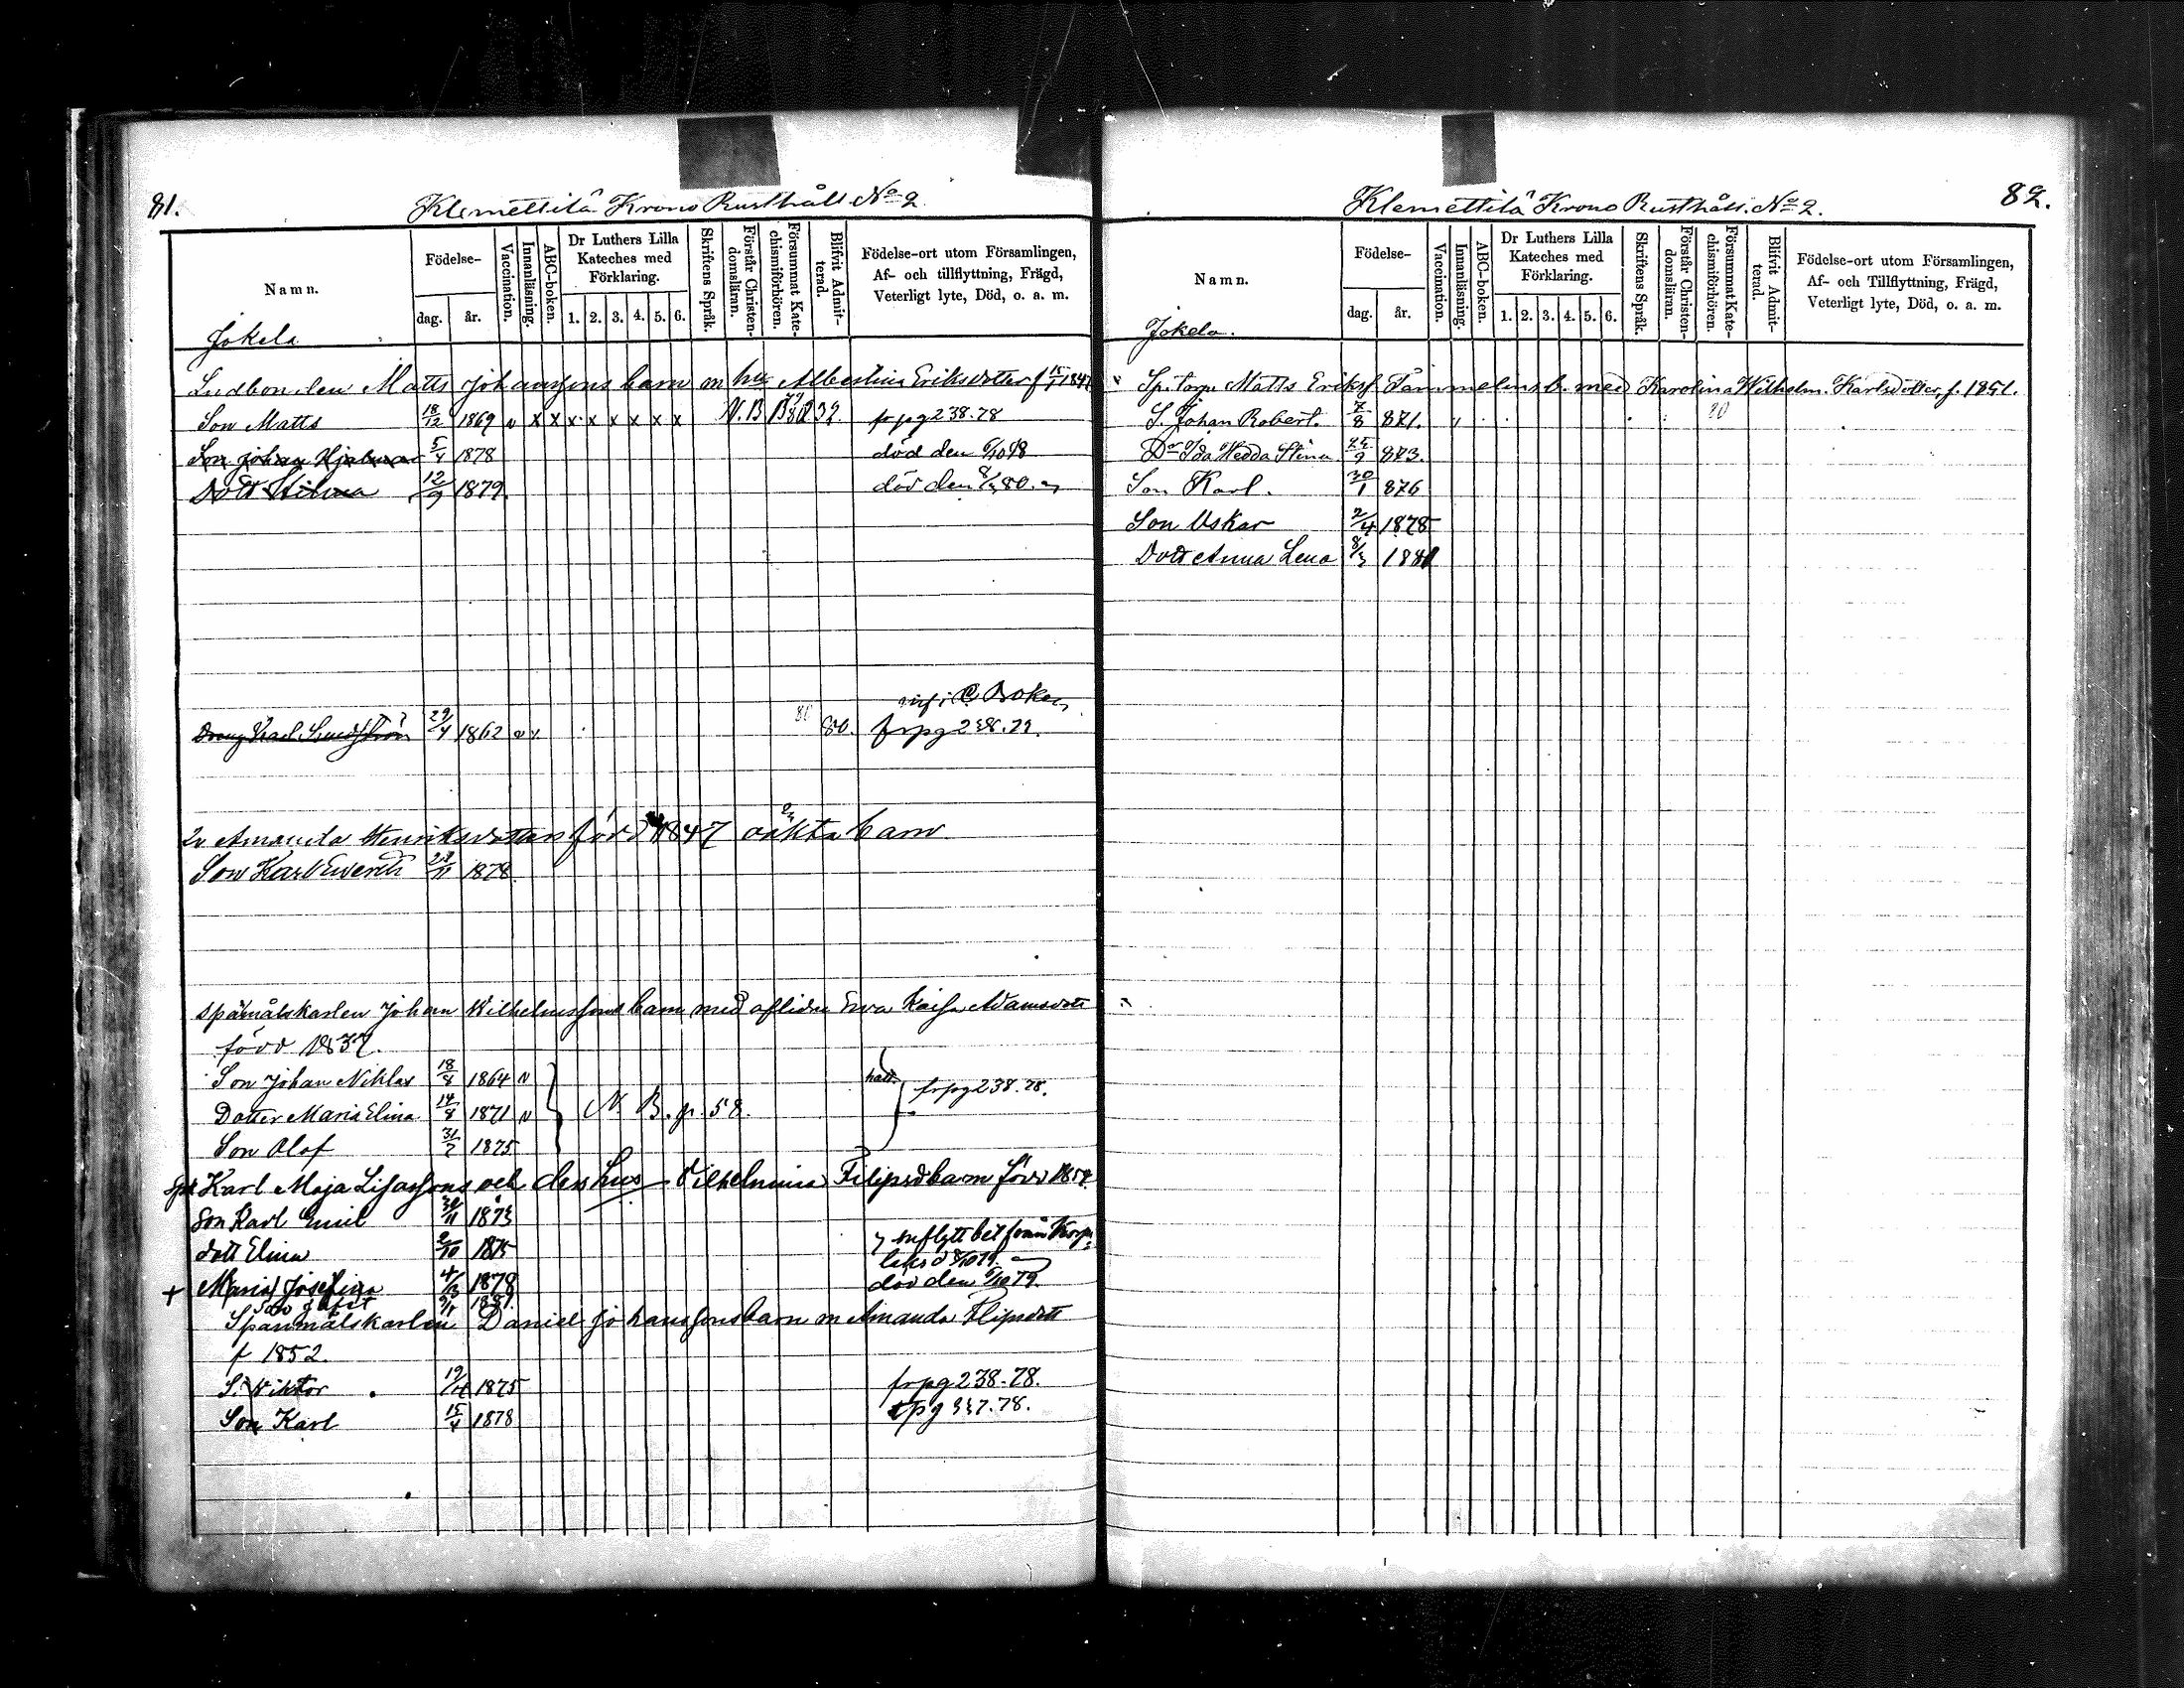 81.
Klemettilä Krono Rusthåll No 2
Namn.
Födelse-
dag.
år.
Vaccination.
Innanläsning.
ABC-boken.
Dr Luthers Lilla Kateches med Förklaring.
1. 2. 3. 4. 5. 6.
Skriftens Språk.
Förstår Christen-domsläran.
Försummat Kate-chismiförhören.
Blifvit Admit-terad.
Födelse-ort utom Församlingen,
Af- och tillflyttning, Frägd,
Veterligt lyte, Död, o. a. m.
Jokela
Matts Johanssons barn m hu Albertina Eriksdotter f
Son Matts 18/12 1869 v x x x x x x x x N. B frpg 238.78
Son Johan Hjalmar 5/4 1878 död den
Dott 12/9 1879 död den 80.
Boken
Dreng Karl 29/4 1862 80. frpg 238.79.
Amanda Henriksdotters född 1847 oäkta barn
Son Karl Evert 23/11 1878
Johan Wilhelmssons barn med aflidne Eva Kaisa Adamsdott
född 1837.
Son Johan Niklas 18/8 1864 v
Dotter Maria Elina 14/8 1871 v N. B. p. 58. frpg 238.78.
Son Olof 31/7 1875
Karl Maja Lisassons och dess hus Vilhelmina Filipsd barn född
Son Karl Emil 30/11 1873
dott Elina 2/10 1875 inflytt bet från
+ Maria Josefina 1878 död den 79.
Spanmålskarlen Daniel Johanssons barn m Amanda Filipsdott
f 1852.
S. Viktor 1875 frpg 238.78.
Son Karl 15/4 1878
Klemettilä Krono Rusthåll. No 2.
82.
Namn.
Födelse-
dag.
år.
Vaccination.
Innanläsning.
ABC-boken.
Dr Luthers Lilla Kateches med Förklaring.
1. 2. 3. 4. 5. 6.
Skriftens Språk.
Förstår Christen-domsläran.
Försummat Kate-chismiförhören.
Blifvit Admit-terad.
Födelse-ort utom Församlingen,
Af- och Tillflyttning, Frägd,
Veterligt lyte, Död, o. a. m.
Jokela.
Matts Eriks. Tammelins b. med Karolina Wilhelm. Karlsdotter, f. 1851.
S. Johan Robert. 7/8 871. 80
Dr Ida Hedda Stina 25/9 873.
Son Karl. 30/1 876
Son Oskar 2/4 1878
Dott Anna Lena 8/3 1881